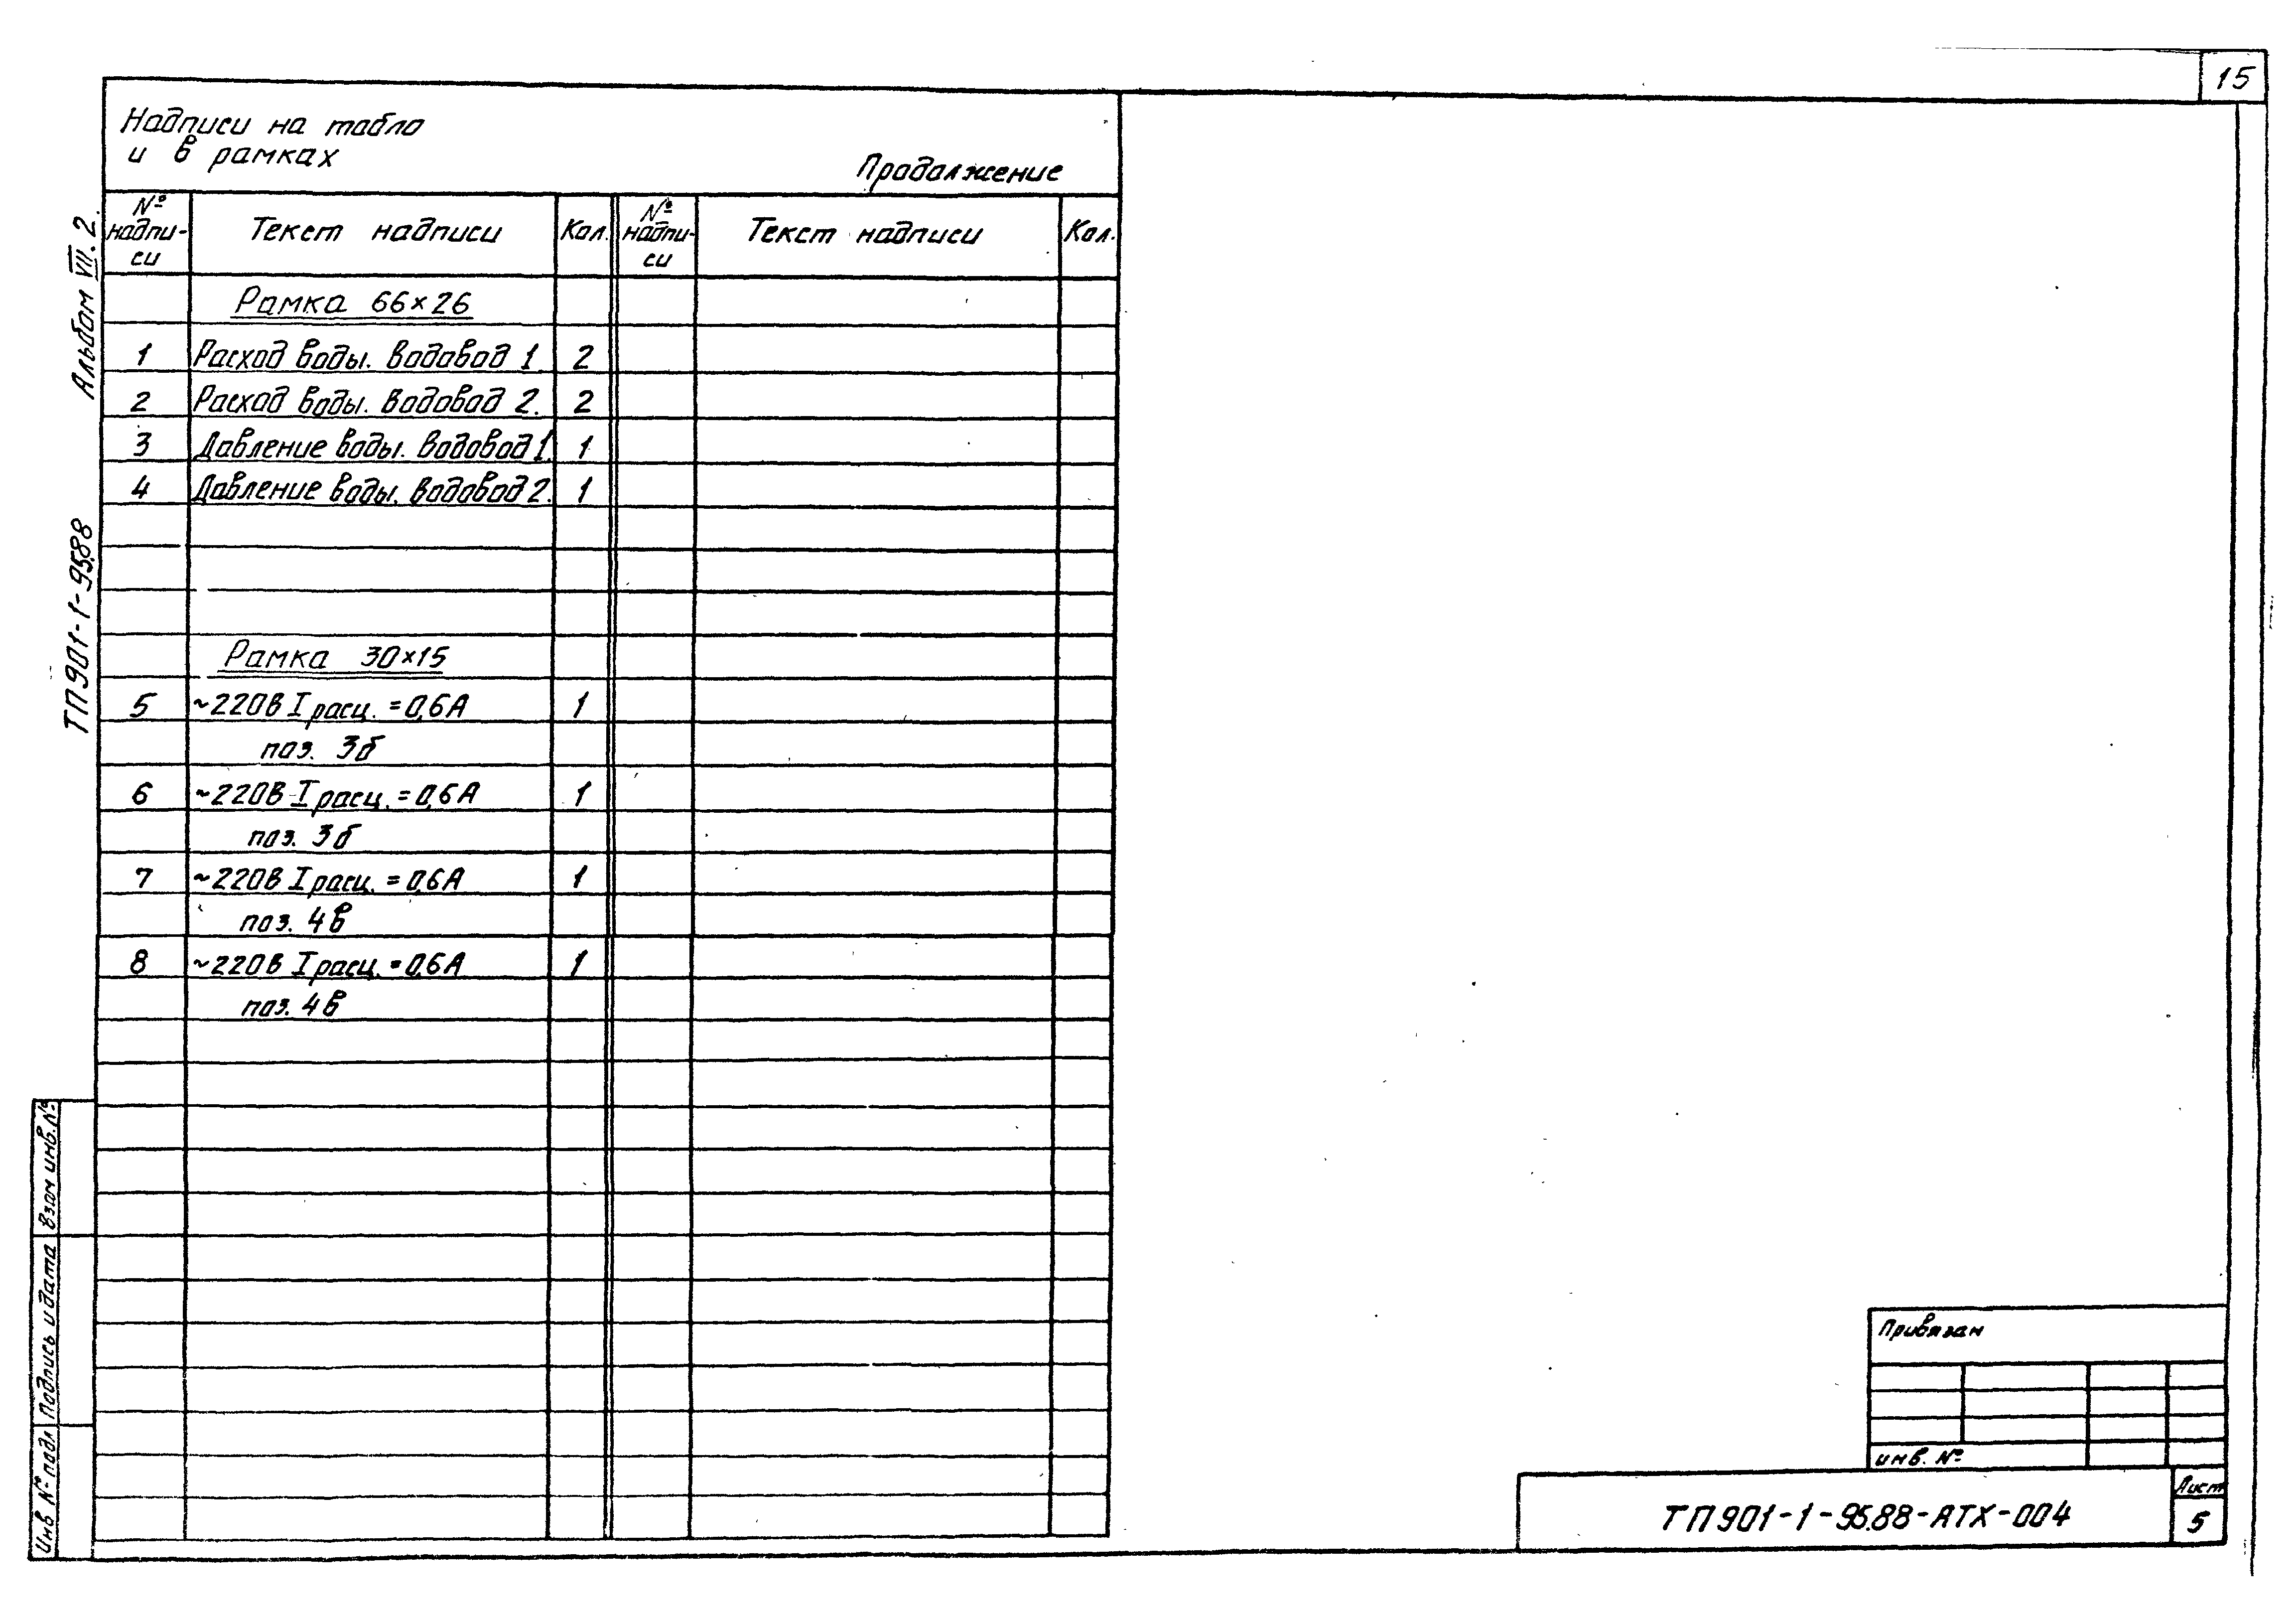 15
Надписи на табло
и в рамках
Продолжение
№ надпи-си Текст надписи Кол. № надпи-си Текст надписи Кол.
Рамка 66×26
1 Расход воды. Водовод 1. 2
2 Расход воды. Водовод 2. 2
3 Давление воды. Водовод 1. 1
4 Давление воды. Водовод 2. 1
Рамка 30×15
5 ~220В Iрасц. = 0,6А 1
поз. 3б
6 ~220В Iрасц. = 0,6А 1
поз. 3б
7 ~220В Iрасц. = 0,6А 1
поз. 4в
8 ~220В Iрасц. = 0,6А 1
поз. 4в
ТП901-1-95.88 Альбом VII. 2.
Инв № подл Подпись и дата Взам инв. №
Привязан
инв. №
ТП901-1-95.88-АТХ-004
Лист
5